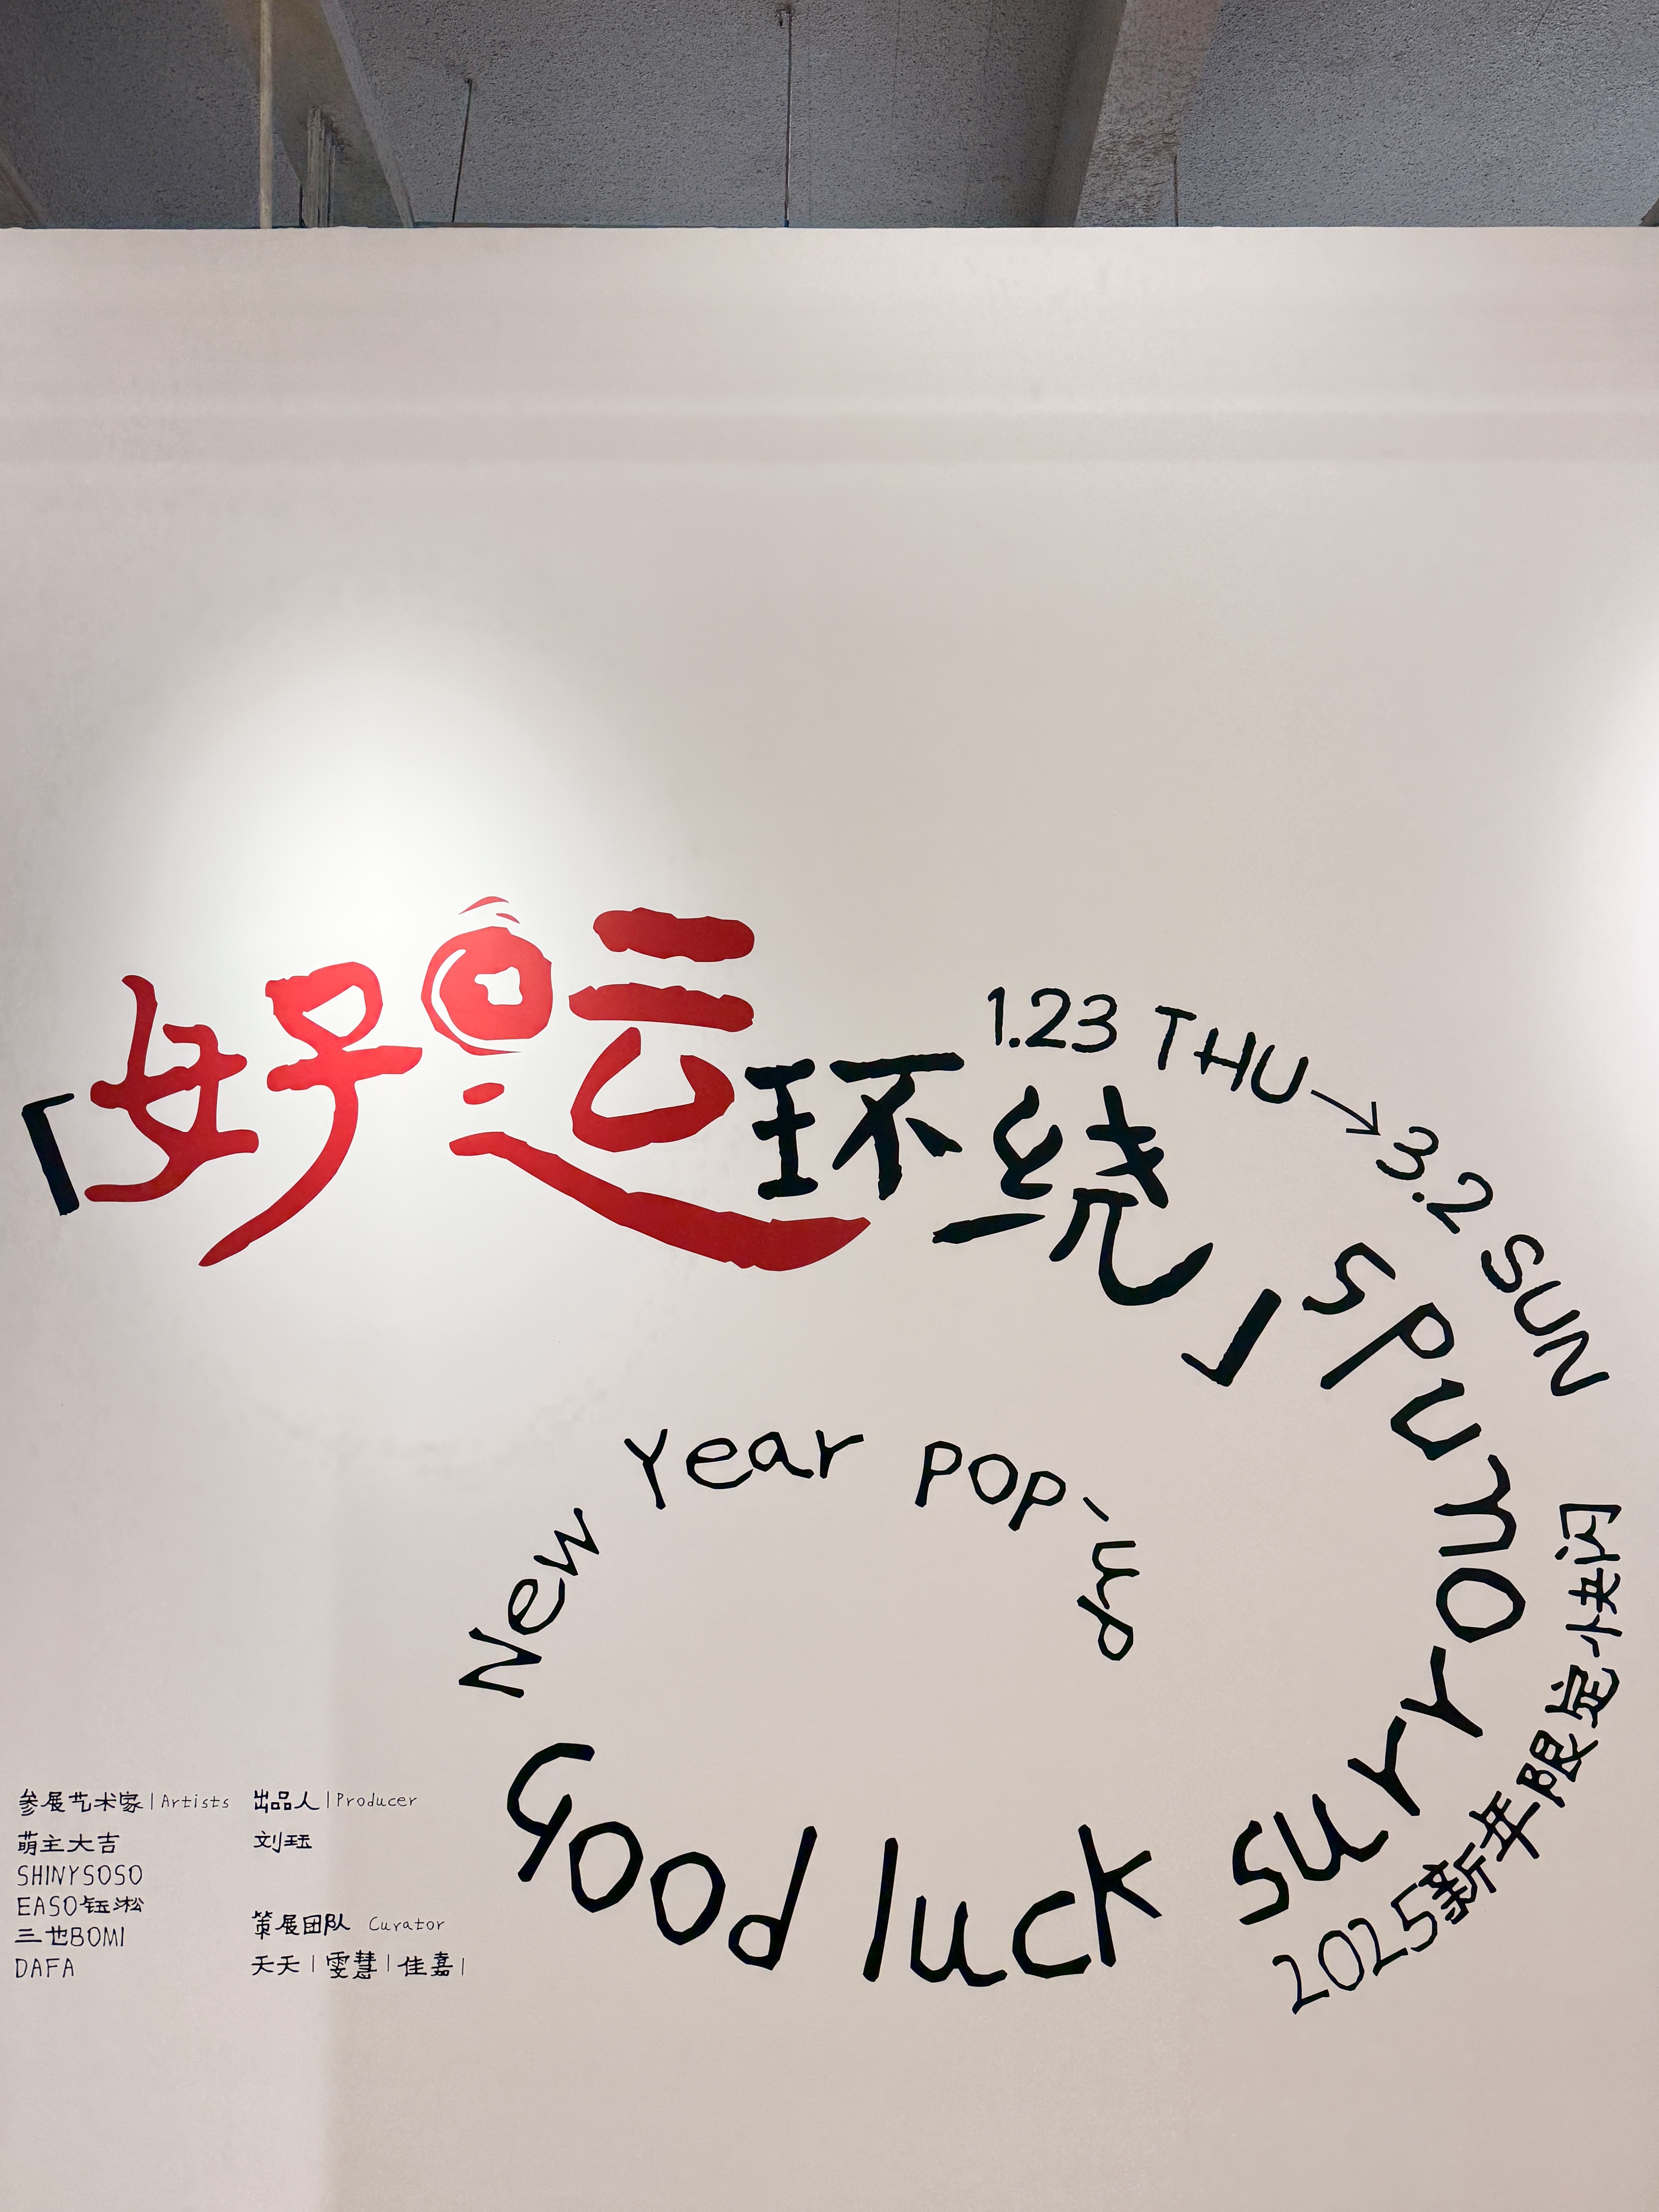 「好运环绕」
1.23 THU→3.2 SUN
Good luck surrounds
New Year pop-up
2025新年限定快闪
参展艺术家|Artists
萌主大吉
SHINYSOSO
EASO钰淞
三也BOMI
DAFA
出品人|Producer
刘珏
策展团队 Curator
天天|雯慧|佳嘉|